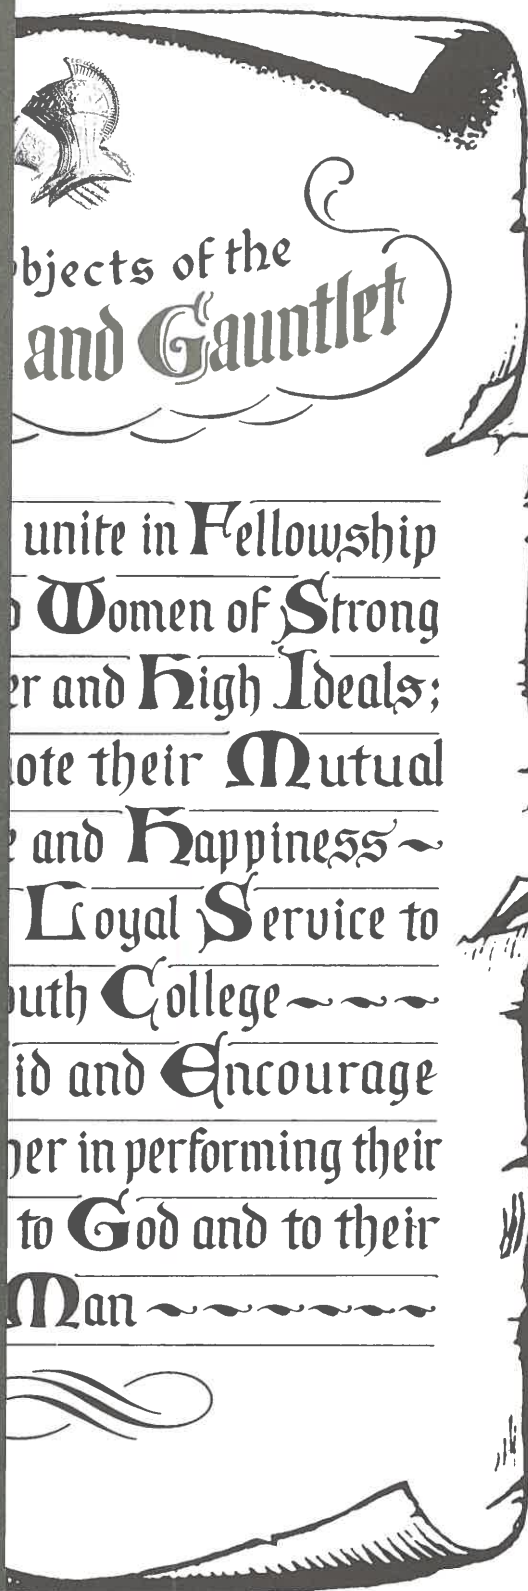 bjects of the
and Gauntlet
unite in Fellowship
Women of Strong
er and High Ideals;
ote their Mutual
and Happiness~
Loyal Service to
outh College~~~
id and Encourage
her in performing their
to God and to their
Man ~~~~~~